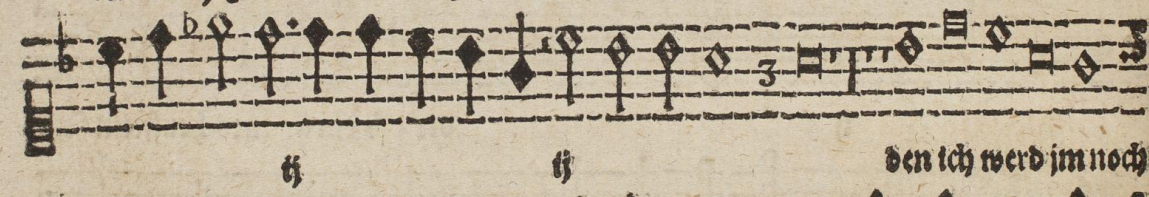 3
ij ij den ich werd jm noch